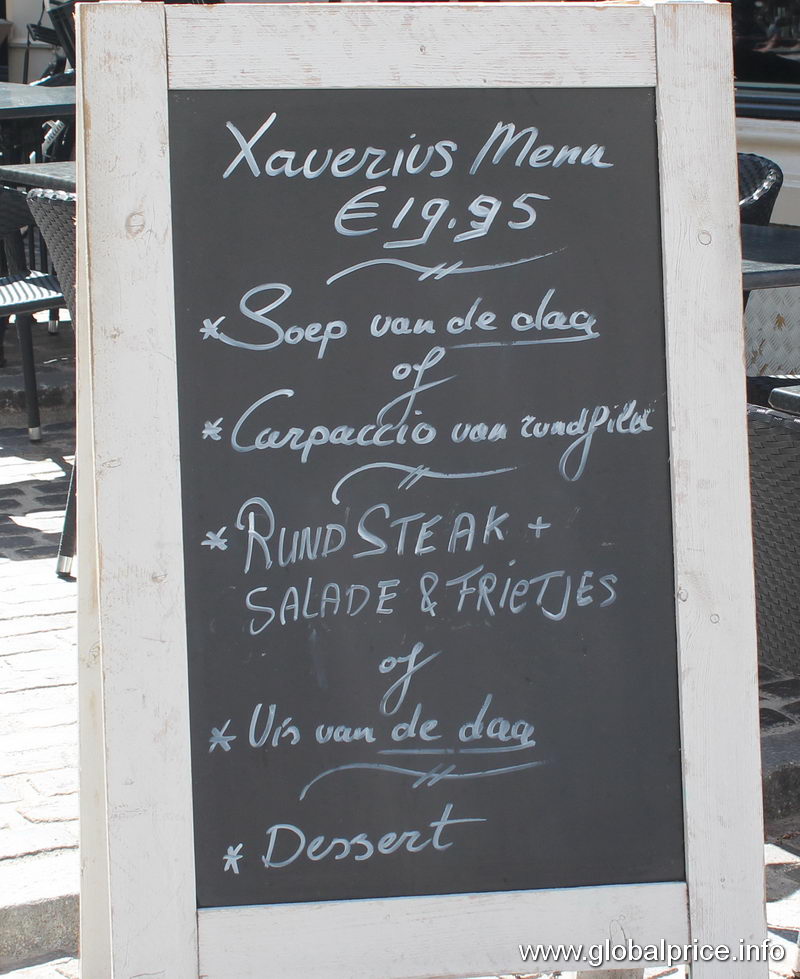 Xaverius Menu
€19.95
* Soep van de dag
of
* Carpaccio van rundfilet
* RUNDSTEAK +
SALADE & FRIETJES
of
* Vis van de dag
* Dessert
www.globalprice.info